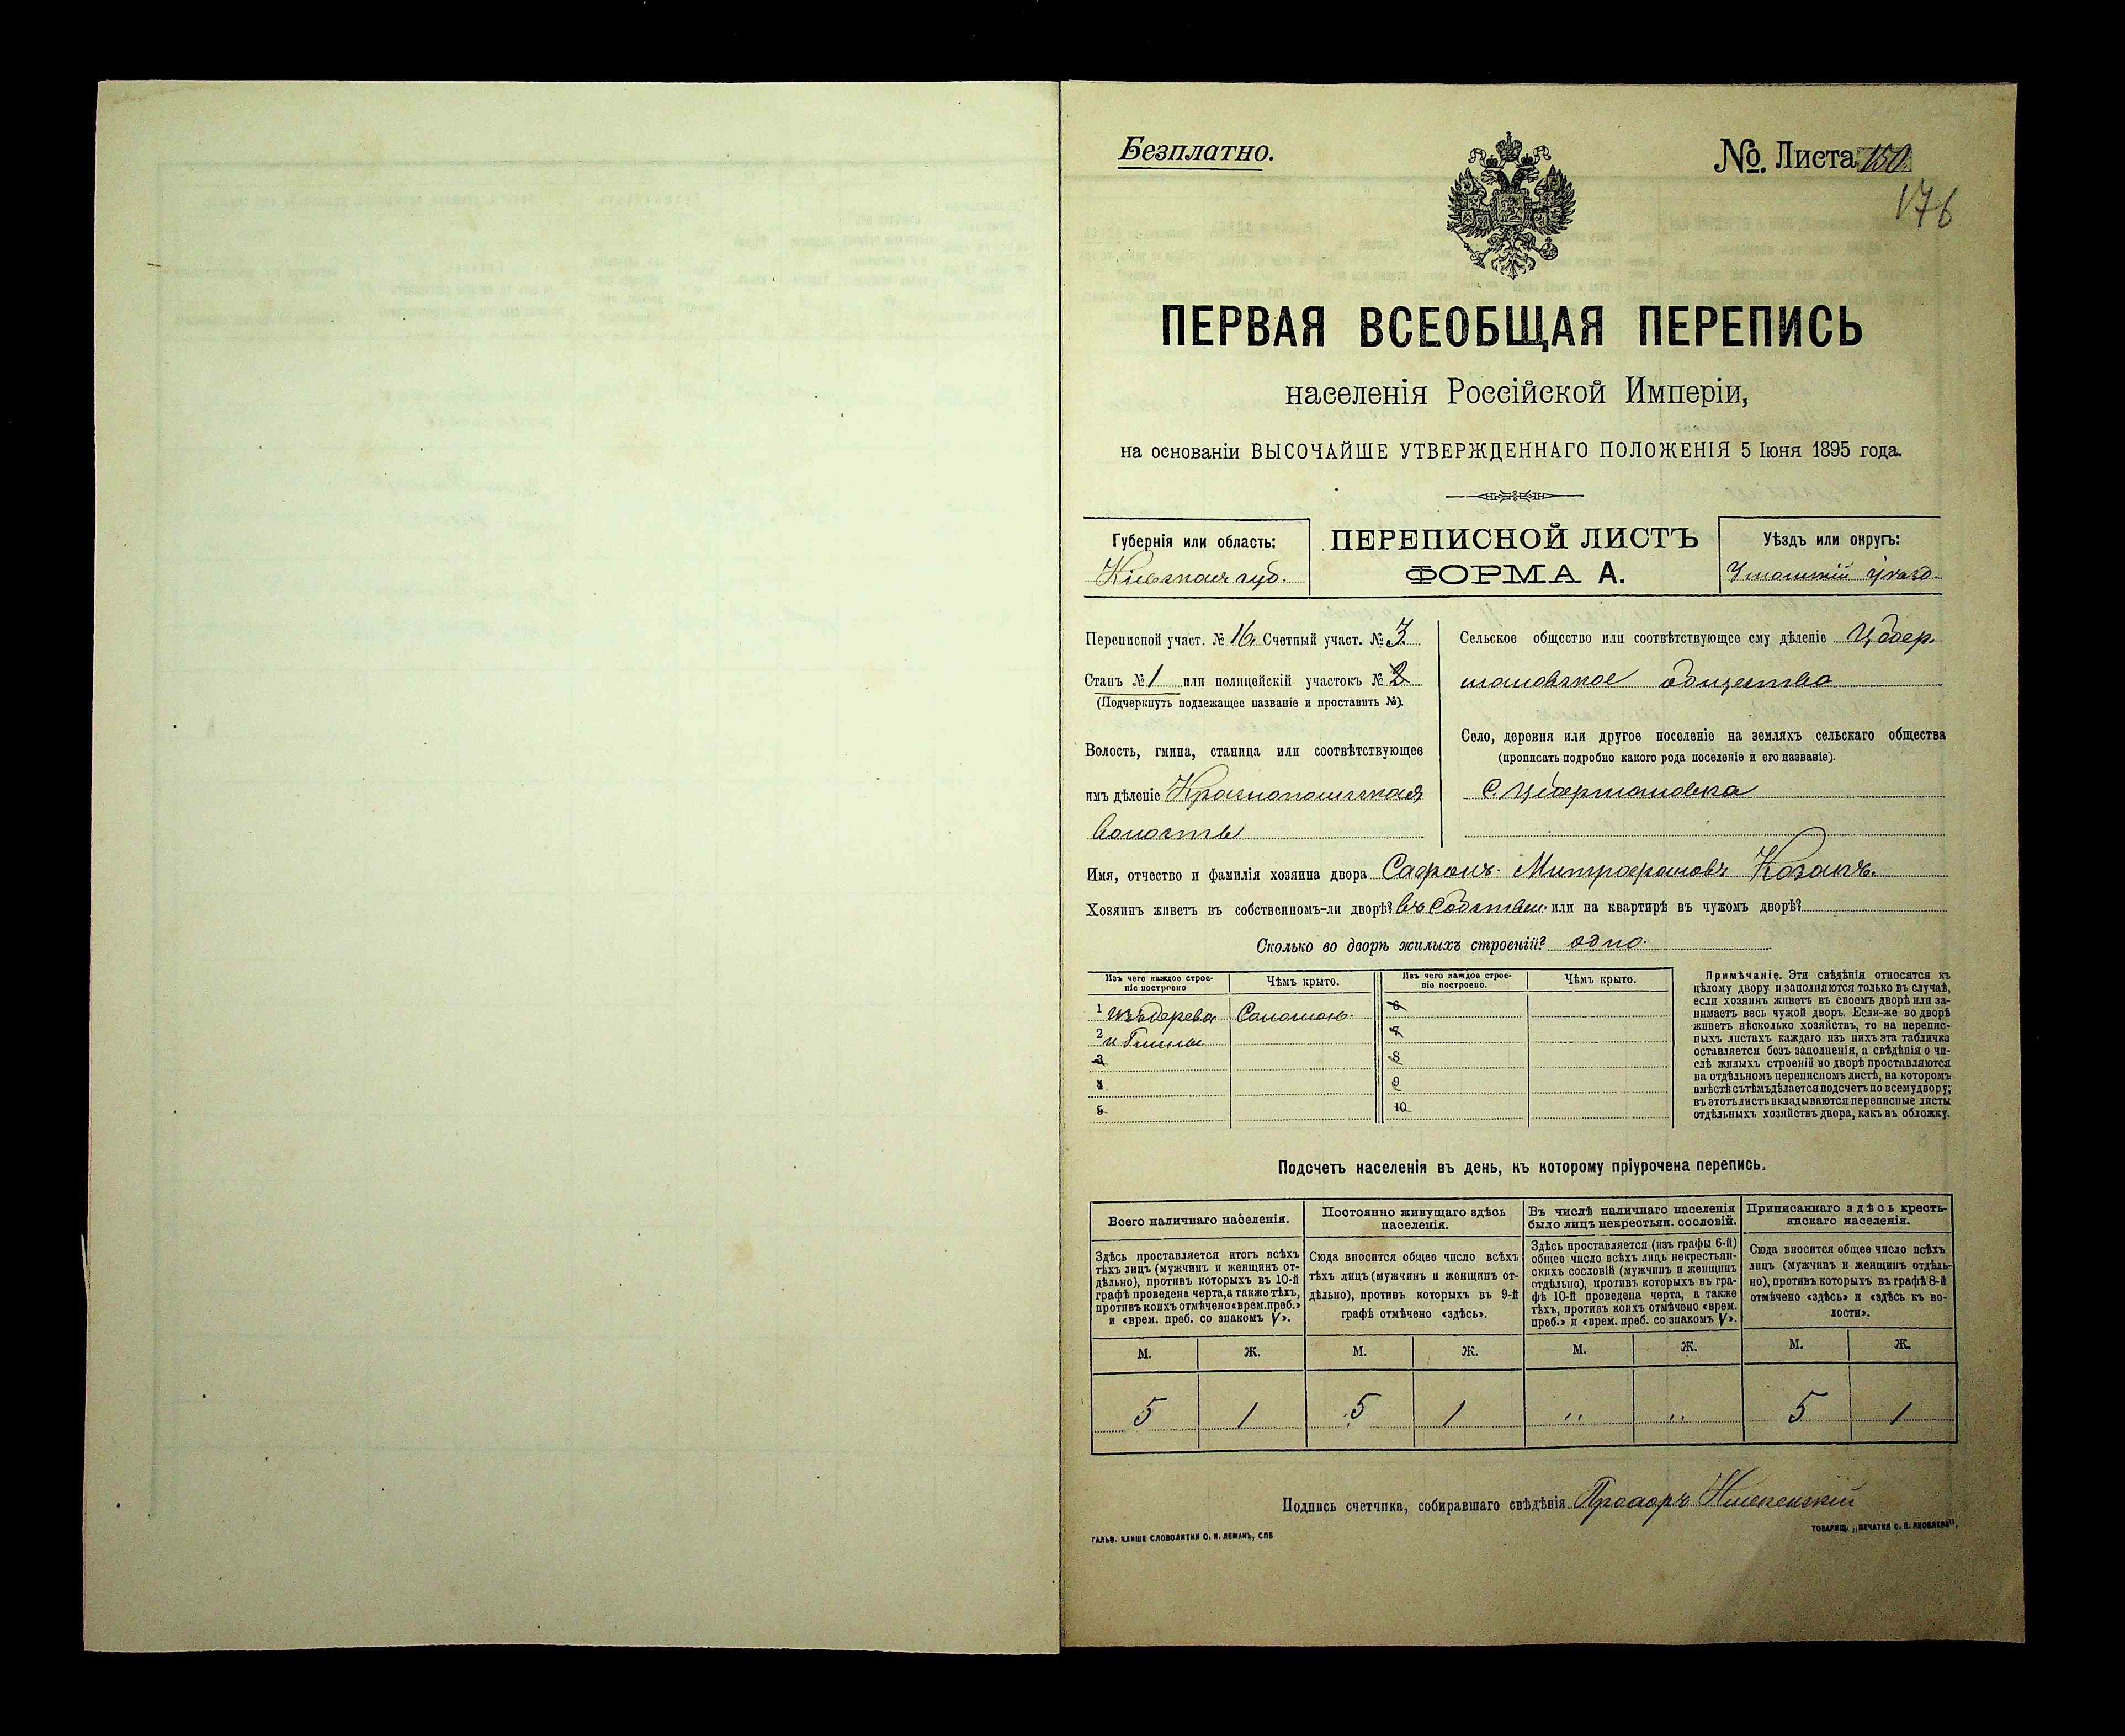 Безплатно.
№. Листа 150
176
ПЕРВАЯ ВСЕОБЩАЯ ПЕРЕПИСЬ
населенія Россійской Имперіи,
на основаніи ВЫСОЧАЙШЕ УТВЕРЖДЕННАГО ПОЛОЖЕНІЯ 5 Іюня 1895 года.
Губернія или область:
Кіевская губ.
ПЕРЕПИСНОЙ ЛИСТЪ
ФОРМА А.
Уѣздъ или округъ:
Уманскій уѣзд
Переписной участ. № 16 Счетный участ. № 3
Станъ № 1 или полицейскій участокъ № 2
(Подчеркнуть подлежащее названіе и проставить №).
Волость, гмина, станица или соотвѣтствующее
имъ дѣленіе Краснопольская
волость
Сельское общество или соотвѣтствующее ему дѣленіе
общество
Село, деревня или другое поселеніе на земляхъ сельскаго общества
(прописать подробно какого рода поселеніе и его названіе).
С.
Имя, отчество и фамилія хозяина двора Сафронъ Митрофановъ Козакъ.
Хозяинъ живетъ въ собственномъ-ли дворѣ? въ собствен. или на квартирѣ въ чужомъ дворѣ?
Сколько во дворѣ жилыхъ строеній? одно.
Изъ чего каждое строе-
ніе построено
Чѣмъ крыто.
Изъ чего каждое строе-
ніе построено.
Чѣмъ крыто.
1 изъ дерева Соломою. 6
2 и Глины 7
3 8
4 9
5 10
Примѣчаніе. Эти свѣдѣнія относятся къ
цѣлому двору и заполняются только въ случаѣ,
если хозяинъ живетъ въ своемъ дворѣ или за-
нимаетъ весь чужой дворъ. Если-же во дворѣ
живетъ нѣсколько хозяйствъ, то на перепис-
ныхъ листахъ каждаго изъ нихъ эта табличка
оставляется безъ заполненія, а свѣдѣнія о чи-
слѣ жилыхъ строеній во дворѣ проставляются
на отдѣльномъ переписномъ листѣ, на которомъ
вмѣстѣ съ тѣмъ дѣлается подсчетъ по всему двору;
въ этотъ листъ вкладываются переписные листы
отдѣльныхъ хозяйствъ двора, какъ въ обложку.
Подсчетъ населенія въ день, къ которому пріурочена перепись.
Всего наличнаго населенія.
Здѣсь проставляется итогъ всѣхъ
тѣхъ лицъ (мужчинъ и женщинъ от-
дѣльно), противъ которыхъ въ 10-й
графѣ проведена черта, а также тѣхъ,
противъ коихъ отмѣчено «врем. преб.»
и «врем. преб. со знакомъ V».
Постоянно живущаго здѣсь
населенія.
Сюда вносится общее число всѣхъ
тѣхъ лицъ (мужчинъ и женщинъ от-
дѣльно), противъ которыхъ въ 9-й
графѣ отмѣчено «здѣсь».
Въ числѣ наличнаго населенія
было лицъ некрестьян. сословій.
Здѣсь проставляется (изъ графы 6-й)
общее число всѣхъ лицъ некрестьян-
скихъ сословій (мужчинъ и женщинъ
отдѣльно), противъ которыхъ въ гра-
фѣ 10-й проведена черта, а также
тѣхъ, противъ коихъ отмѣчено «врем.
преб.» и «врем. преб. со знакомъ V».
Приписаннаго здѣсь кресть-
янскаго населенія.
Сюда вносится общее число всѣхъ
лицъ (мужчинъ и женщинъ отдѣль-
но), противъ которыхъ въ графѣ 8-й
отмѣчено «здѣсь» и «здѣсь къ во-
лости».
М. Ж. М. Ж. М. Ж. М. Ж.
5 1 5 1 „ „ 5 1
Подпись счетчика, собиравшаго свѣдѣнія
ГАЛЬВ. КЛИШЕ СЛОВОЛИТНИ О. И. ЛЕМАНЪ, СПБ
ТОВАРИЩ. „ПЕЧАТНЯ С. П. ЯКОВЛЕВА“.